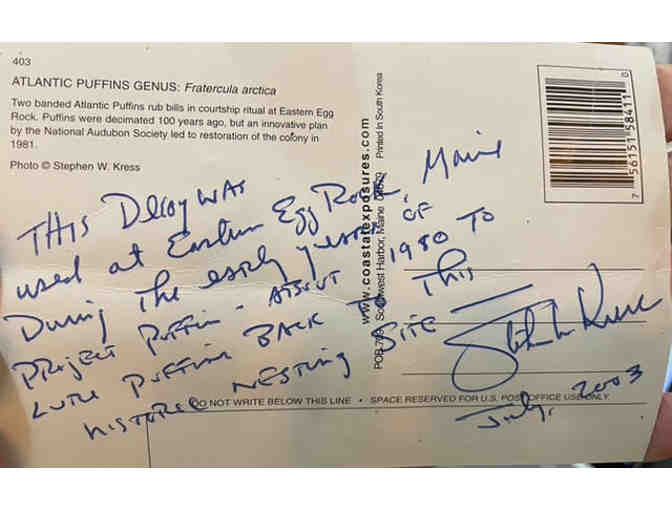 403
ATLANTIC PUFFINS GENUS: Fratercula arctica
Two banded Atlantic Puffins rub bills in courtship ritual at Eastern Egg
Rock. Puffins were decimated 100 years ago, but an innovative plan
by the National Audubon Society led to restoration of the colony in
1981.
Photo © Stephen W. Kress
THIS Decoy was
used at Eastern Egg Rock, Maine
During The early years of
PROJECT Puffin - ABOUT 1980 TO
LURE PUFFINS BACK This
HISTORIC NESTING SITE
Stephen Kress
July, 2003
www.coastalexposures.com
Southwest Harbor, Maine
Printed in South Korea
7 56151 58411 0
DO NOT WRITE BELOW THIS LINE • SPACE RESERVED FOR U.S. POST OFFICE USE ONLY